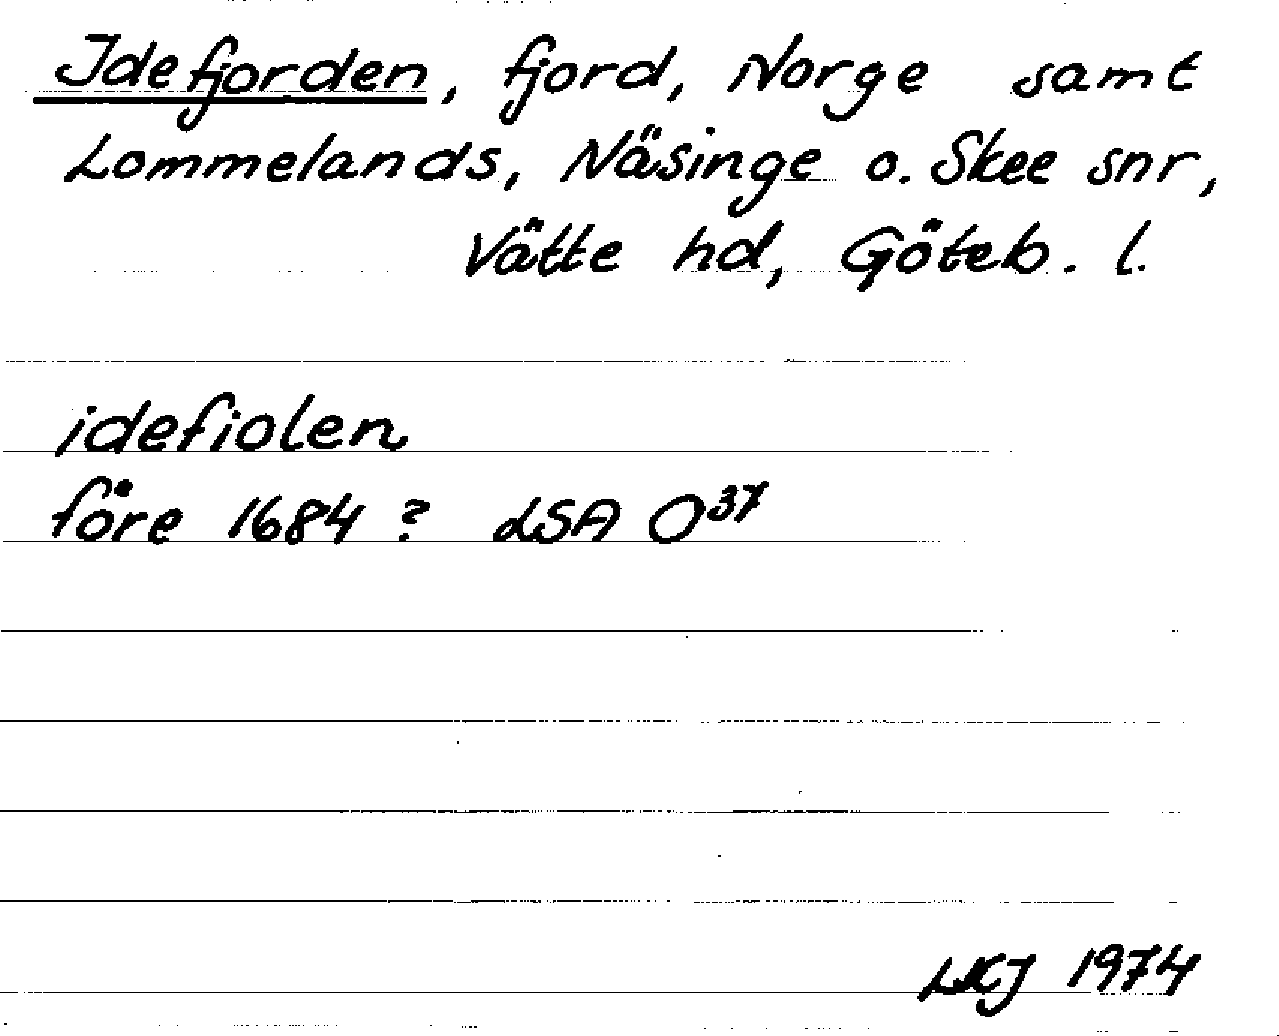 Idefjorden, fjord, Norge samt
Lommelands, Näsinge o. Skee snr,
Vätte hd, Göteb. l.
idefiolen
före 1684? LSA O37
LKJ 1974